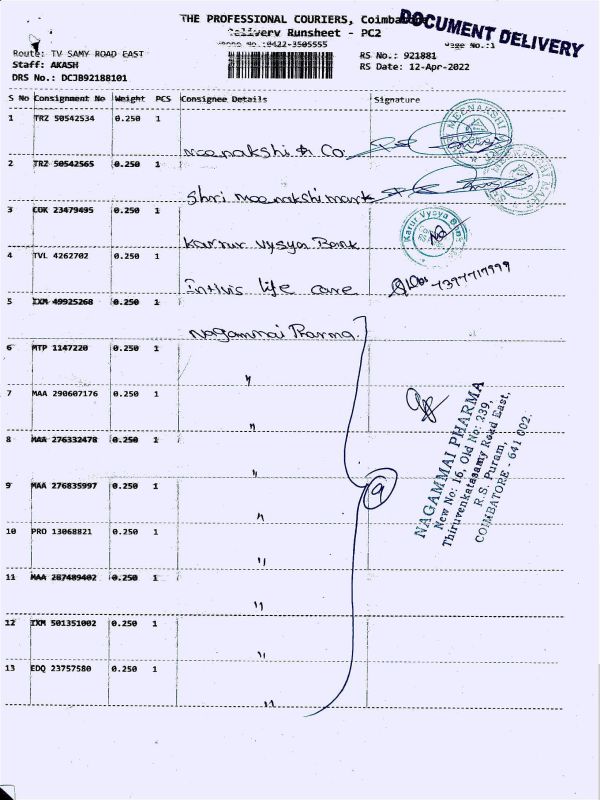 THE PROFESSIONAL COURIERS, Coimbatore
DOCUMENT DELIVERY
Delivery Runsheet - PC2
Phone No.:0422-3505555
Page No.:1
Route: TV SAMY ROAD EAST
RS No.: 921881
Staff: AKASH
RS Date: 12-Apr-2022
DRS No.: DCJB92188101
S No Consignment No Weight PCS Consignee Details Signature
1 TRZ 50542534 0.250 1
Meenakshi & Co.
MEENAKSHI
2 TRZ 50542565 0.250 1
Shri Meenakshi mark
3 COK 23479495 0.250 1
Karur Vysya Bank
Karur Vysya Bank
4 TVL 4262702 0.250 1
Intivis life care
7397717999
5 IXM 49925268 0.250 1
Nagammai Pharma.
6 MTP 1147220 0.250 1
"
7 MAA 290607176 0.250 1
"
8 MAA 276332478 0.250 1
"
9 MAA 276835997 0.250 1
"
9
NAGAMMAI PHARMA
New No: 16, Old No: 239,
Thiruvenkatasamy Road East,
R.S. Puram,
COIMBATORE - 641 002.
10 PRO 13068821 0.250 1
"
11 MAA 287489402 0.250 1
"
12 IXM 501351002 0.250 1
"
13 EDQ 23757580 0.250 1
"